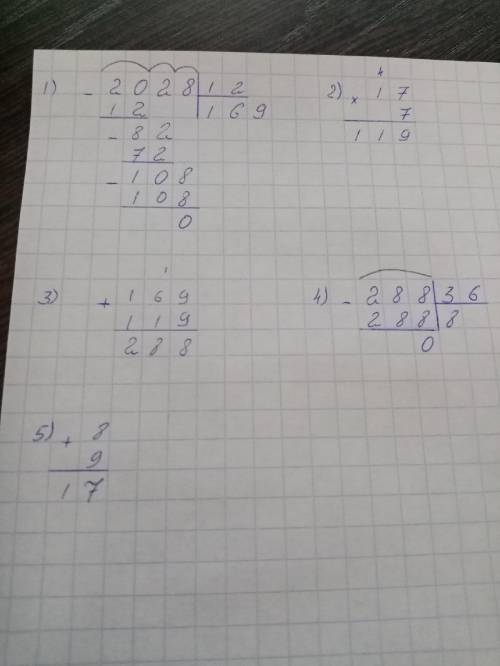 1) - 2028 | 12
12 | 169
- 82
72
- 108
108
0
2) 4
x 17
7
119
3) 1
+ 169
119
288
4) - 288 | 36
288 | 8
0
5) + 8
9
17